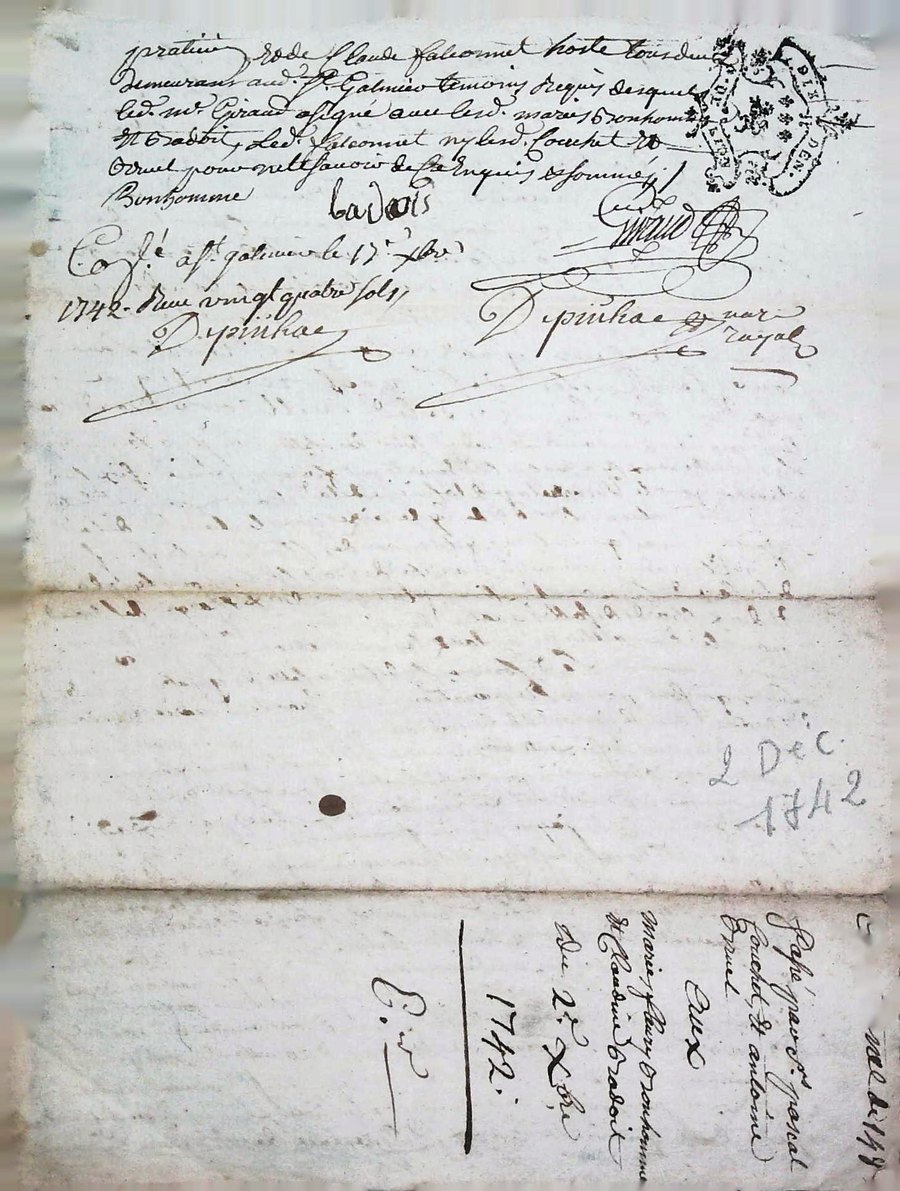 praticien et de Claude falconnet hoste tous deux
demeurans aud. St. Galmier temoins Requis desquels
led. me. Giraud a signé avec lesd. maries Bonhomme
et Badoit, Led. falconnet ny lesd. Couchet et
Bruel pour ne Sçavoir de Ce Enquis et sommés /
Bonhomme
badois
Giraud
Con.lé a St. galmier le 12e. Xbre
1742. Reçu vingt quatre sols,
Depinhac
Depinhac nore
royal
2 Déc.
1742
passé par Sr. pascal
Couchet, et antoine
Bruel
Aux
maries fleury Bonhomme
et Claudine Badoit
du 2e. Xbre
1742.
E.d